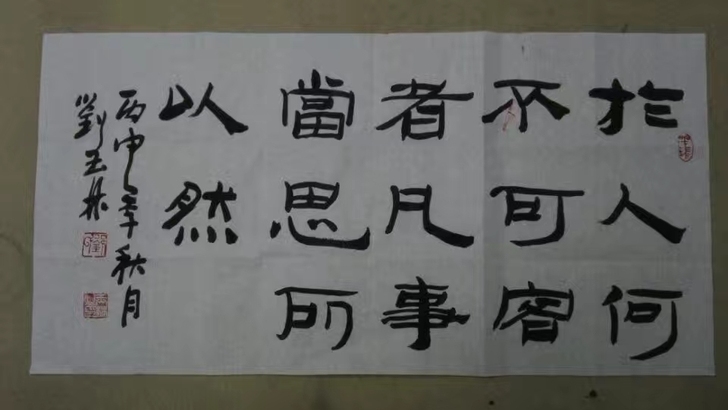 於人何
不可容
者凡事
當思所
以然
丙申年秋月
劉玉林